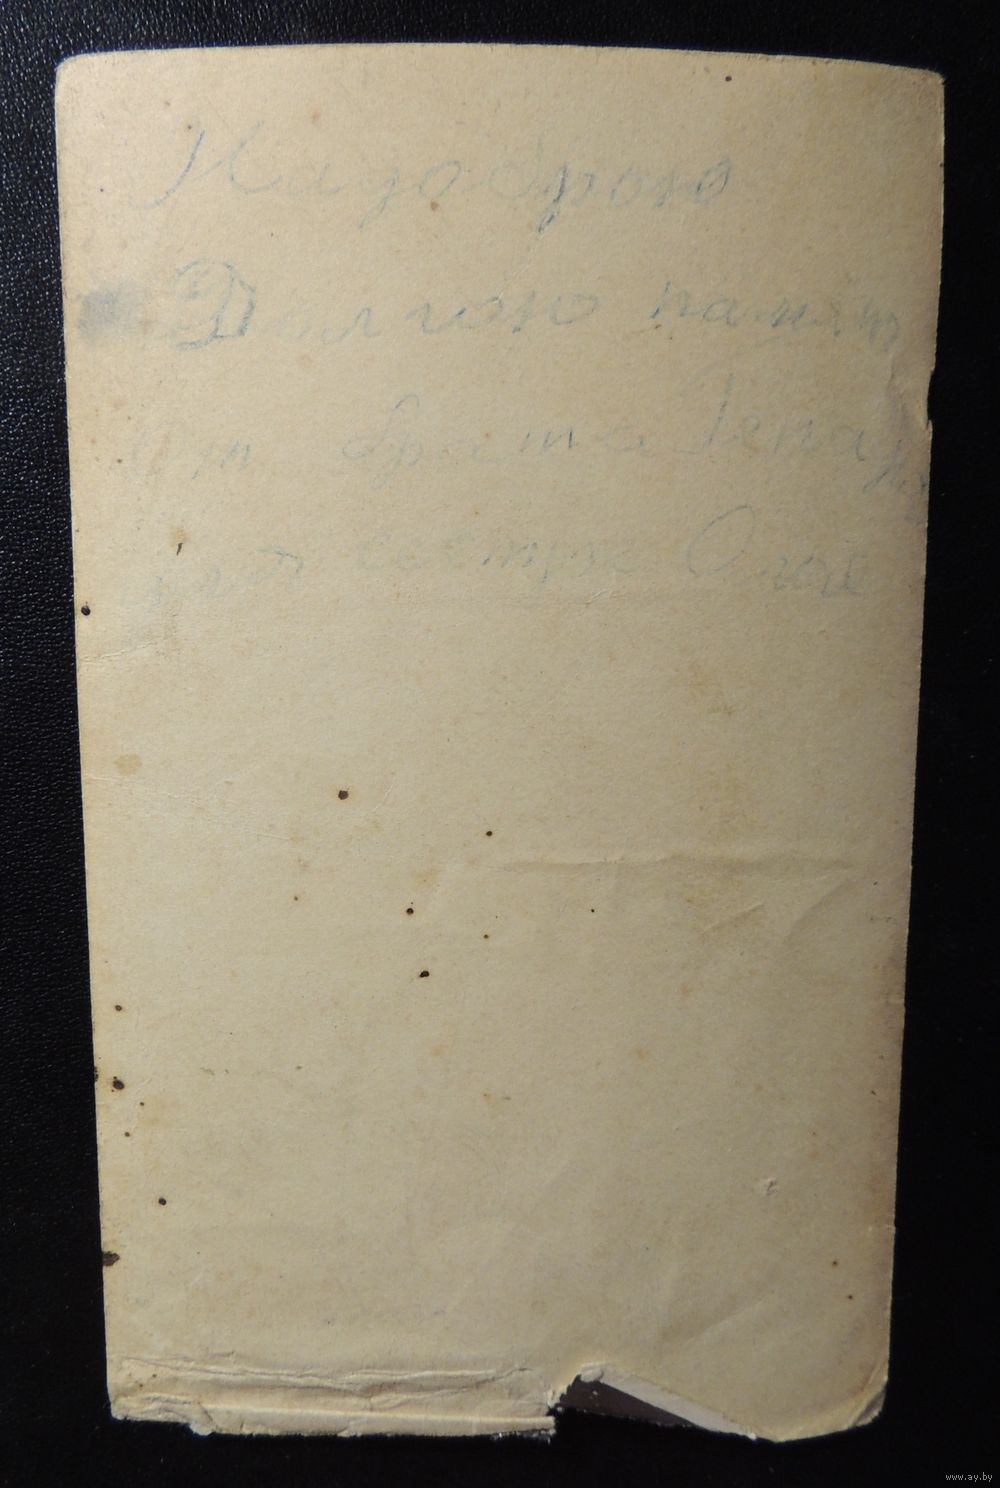 На доброю
Долгою памят
От брата Генад
сестре Олге
www.ay.by